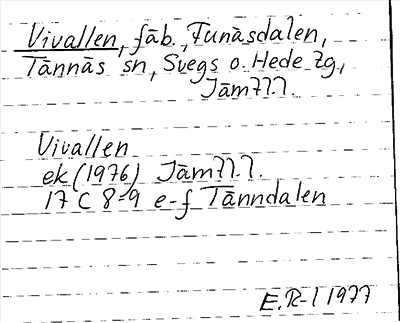 Vivallen, fäb., Funäsdalen,
Tännäs sn, Svegs o. Hede tg,
Jämtl.
Vivallen
ek (1976) Jämtl.
17 C 8-9 e-f Tänndalen
E.R-l 1977